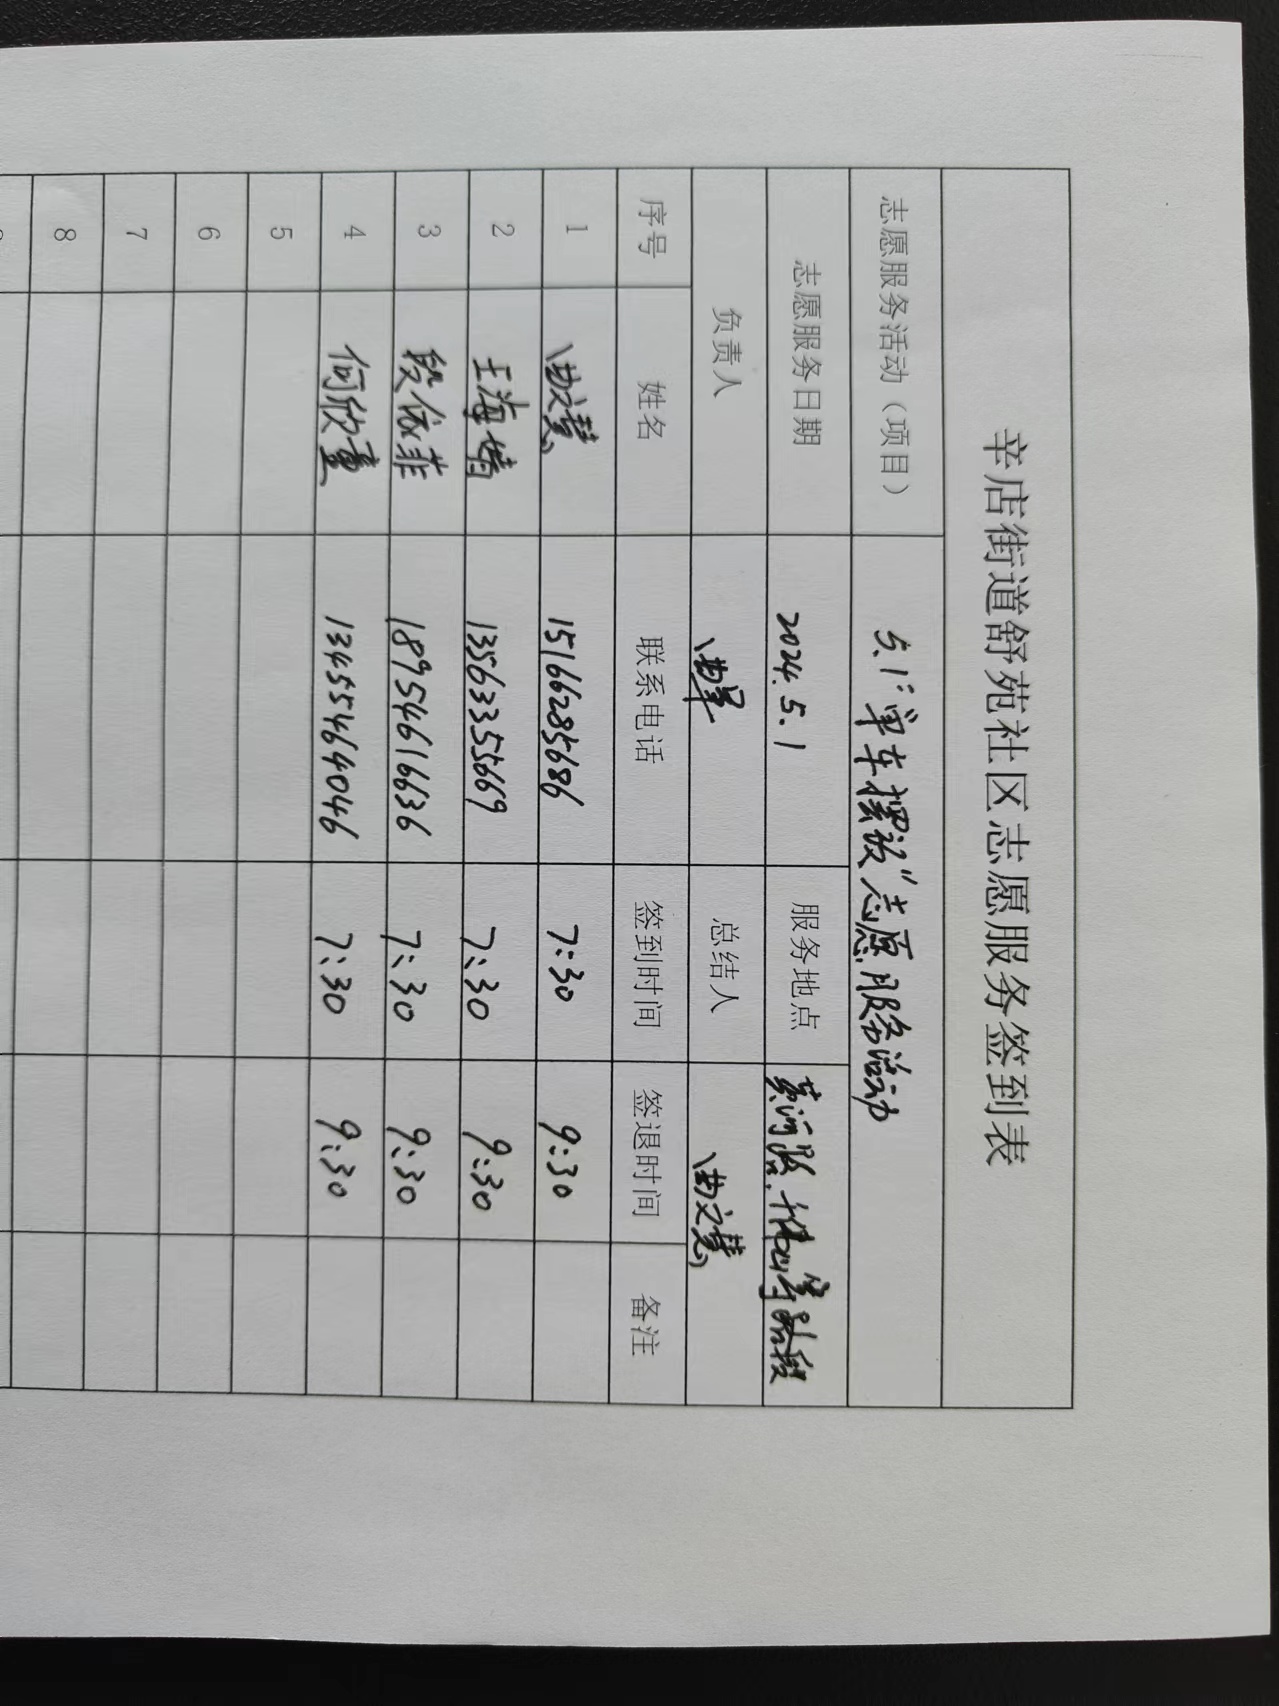 辛店街道舒苑社区志愿服务签到表
志愿服务活动（项目） 5.1"单车摆放"志愿服务活动
志愿服务日期 2024.5.1 服务地点 黄河路.牛山等路段
负责人 总结人 曲文慧
序号 姓名 联系电话 签到时间 签退时间 备注
1 曲文慧 15166285686 7:30 9:30
2 王海婧 13563355669 7:30 9:30
3 段依菲 18954616636 7:30 9:30
4 何欣童 13455464046 7:30 9:30
5
6
7
8